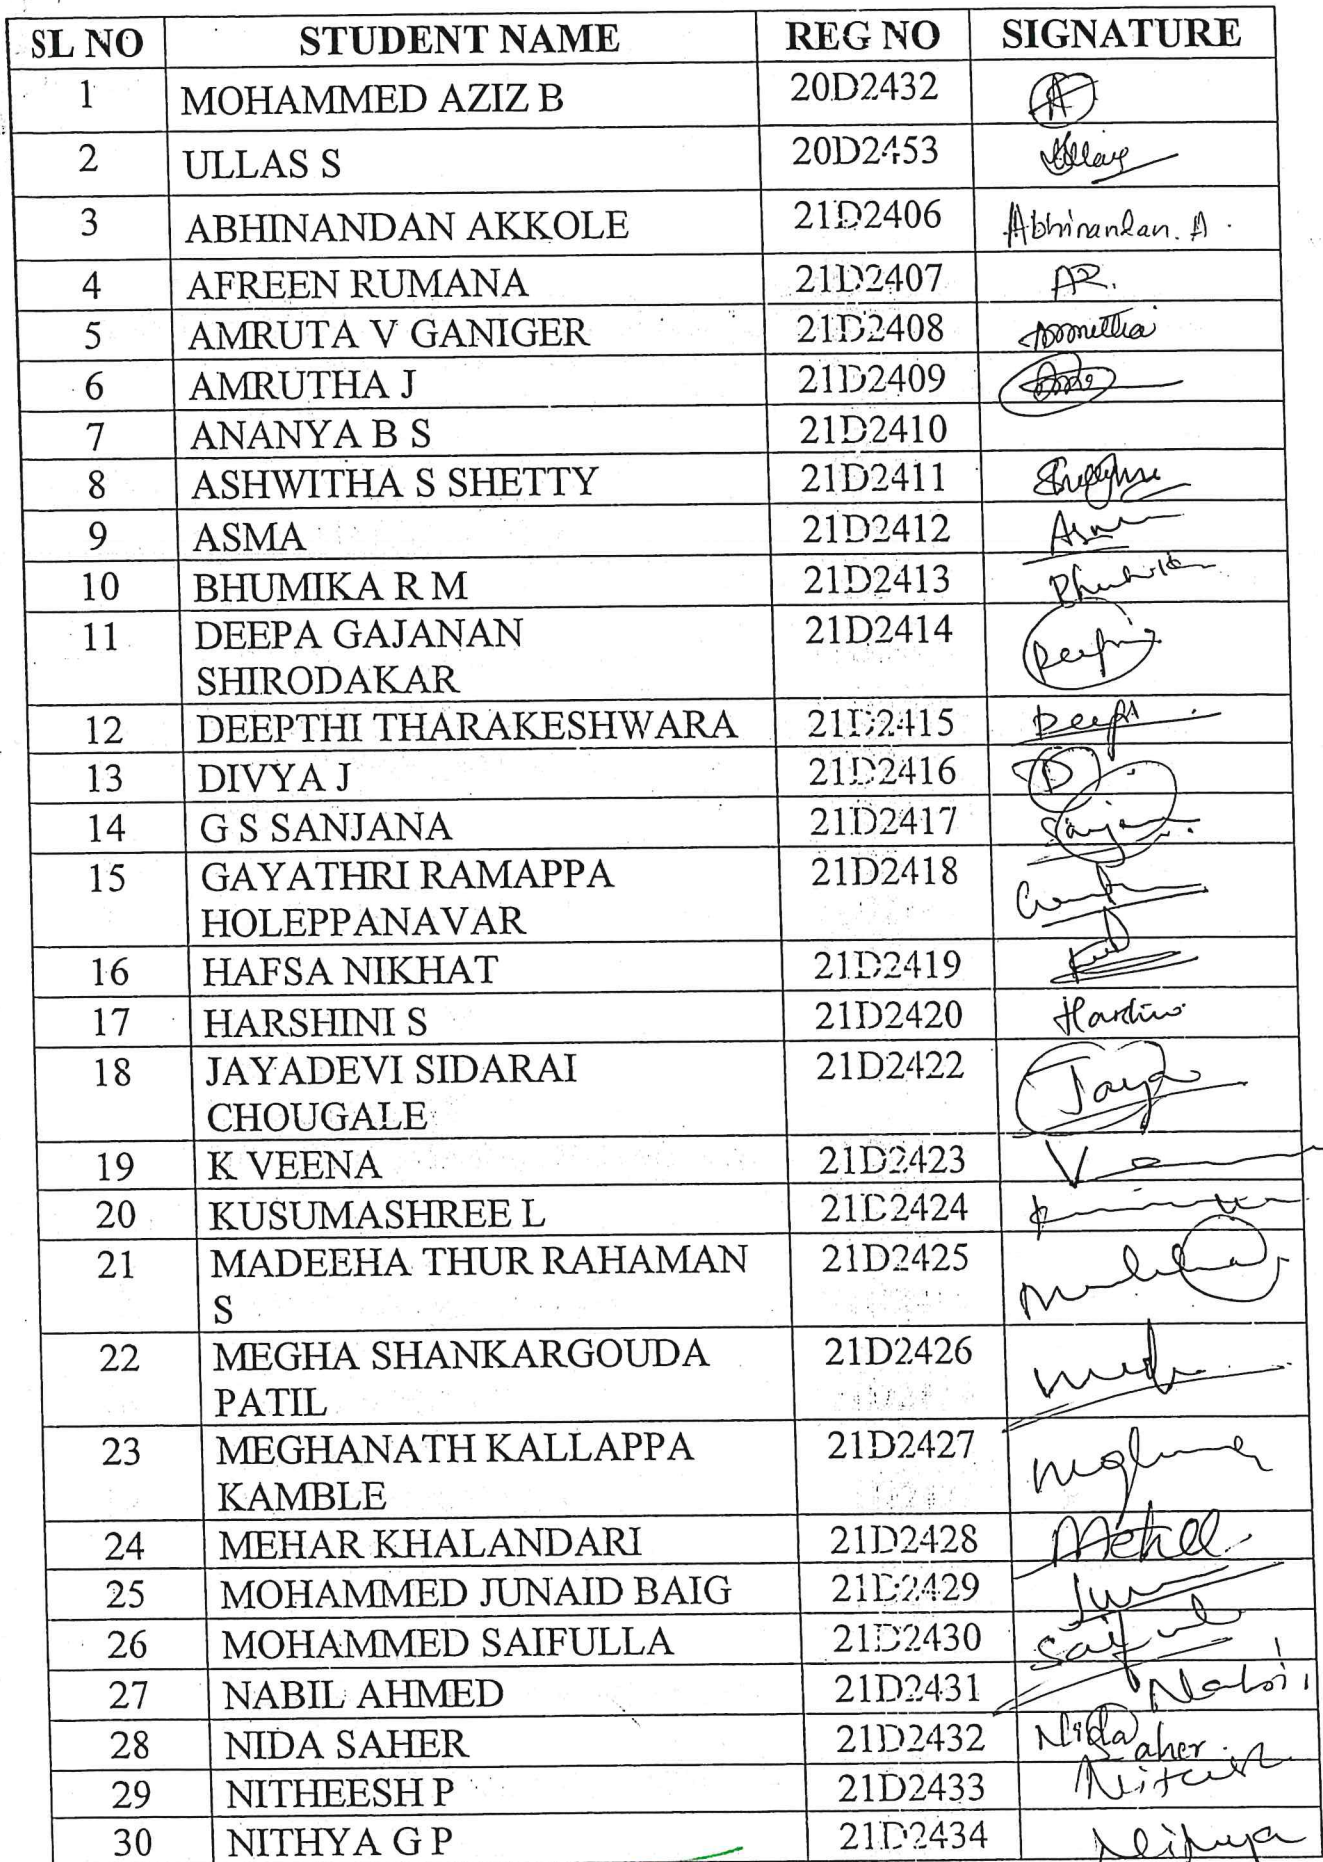 SL NO STUDENT NAME REG NO SIGNATURE
1 MOHAMMED AZIZ B 20D2432 A
2 ULLAS S 20D2453 Ullas
3 ABHINANDAN AKKOLE 21D2406 Abhinandan. A.
4 AFREEN RUMANA 21D2407 AR.
5 AMRUTA V GANIGER 21D2408
6 AMRUTHA J 21D2409
7 ANANYA B S 21D2410
8 ASHWITHA S SHETTY 21D2411
9 ASMA 21D2412 Asma
10 BHUMIKA R M 21D2413 Bhumika
11 DEEPA GAJANAN 21D2414 Deepa
SHIRODAKAR
12 DEEPTHI THARAKESHWARA 21D2415
13 DIVYA J 21D2416 D
14 G S SANJANA 21D2417
15 GAYATHRI RAMAPPA 21D2418
HOLEPPANAVAR
16 HAFSA NIKHAT 21D2419
17 HARSHINI S 21D2420
18 JAYADEVI SIDARAI 21D2422 Jaya
CHOUGALE
19 K VEENA 21D2423
20 KUSUMASHREE L 21D2424
21 MADEEHA THUR RAHAMAN 21D2425
S
22 MEGHA SHANKARGOUDA 21D2426
PATIL
23 MEGHANATH KALLAPPA 21D2427
KAMBLE
24 MEHAR KHALANDARI 21D2428
25 MOHAMMED JUNAID BAIG 21D2429
26 MOHAMMED SAIFULLA 21D2430
27 NABIL AHMED 21D2431 Nabil
28 NIDA SAHER 21D2432 Nida Saher.
29 NITHEESH P 21D2433
30 NITHYA G P 21D2434 Nithya